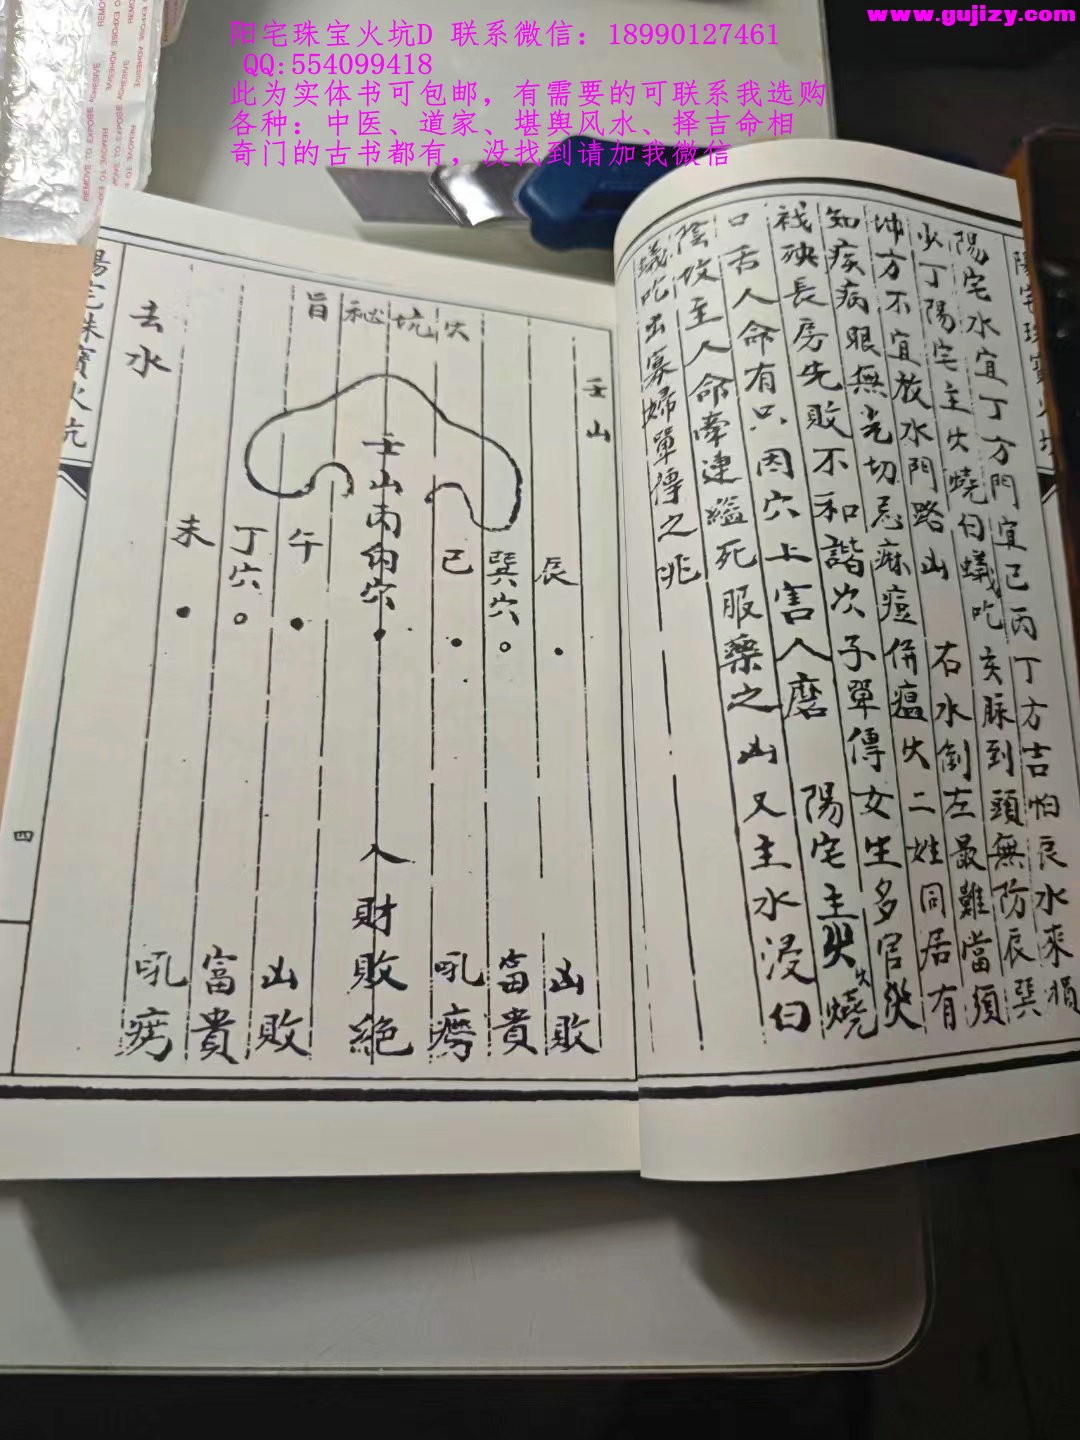 www.gujizy.com
阳宅珠宝火坑D 联系微信：18990127461
QQ:554099418
此为实体书可包邮，有需要的可联系我选购
各种：中医、道家、堪舆风水、择吉命相
奇门的古书都有，没找到请加我微信
陽宅珠寶火坑
陽宅水宜丁方門宜己丙丁方吉怕艮水來損
少丁陽宅主火燒白蟻吃 亥脉到頭無防辰巽
坤方不宜放水門路凶 右水倒左最難當須
知疾病眼無光切忌痳痘併瘟火二姓同居有
殘殃長房先敗不和諧次子單傳女生多官災
口舌人命有只因穴上害人磨 陽宅主火燒
陰坟主人命牽連縊死服藥之凶又主水浸白
蟻吃出寡婦單傳之兆
壬山
火坑秘旨
去水
壬山丙向穴
辰 凶敗
巽穴 富貴
巳 吼癆
人財敗絕
午 凶敗
丁穴 富貴
未 吼癆
陽宅珠寶火坑
四
REMOVE TO EXPOSE ADHESIVE